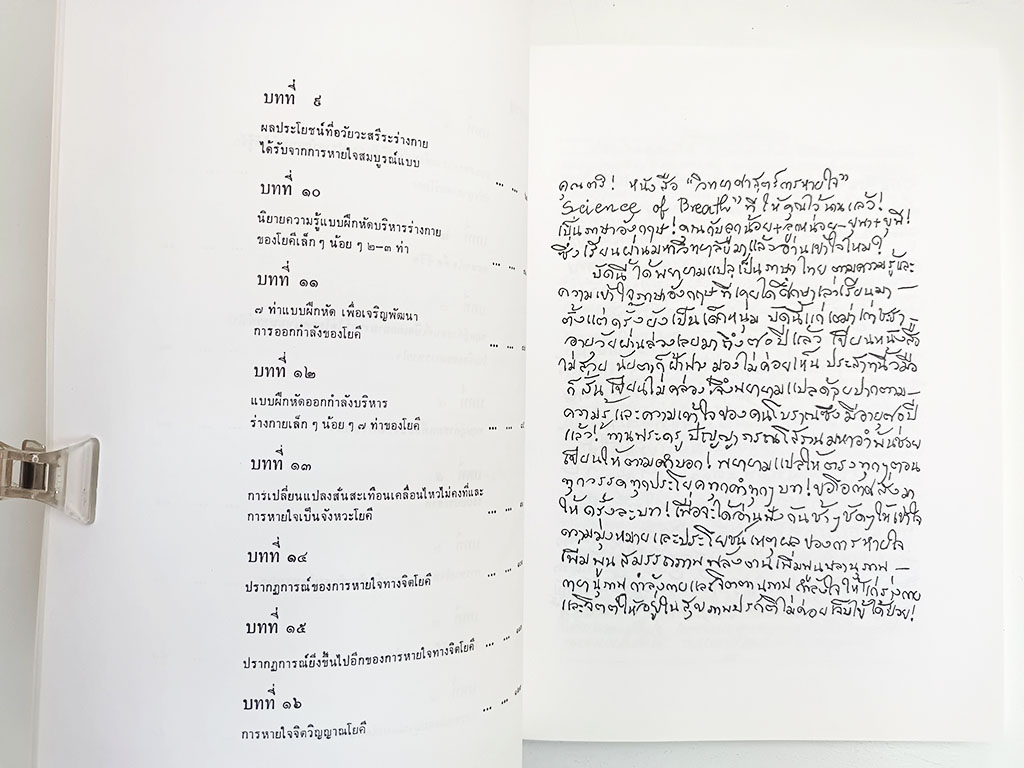 บทที่ ๙
ผลประโยชน์ที่อวัยวะสรีระร่างกาย
ได้รับจากการหายใจสมบูรณ์แบบ
บทที่ ๑๐
นิยายความรู้แบบฝึกหัดบริหารร่างกาย
ของโยคีเล็ก ๆ น้อย ๆ ๒–๓ ท่า
บทที่ ๑๑
๗ ท่าแบบฝึกหัด เพื่อเจริญพัฒนา
การออกกำลังของโยคี
บทที่ ๑๒
แบบฝึกหัดออกกำลังบริหาร
ร่างกายเล็ก ๆ น้อย ๆ ๗ ท่าของโยคี
บทที่ ๑๓
การเปลี่ยนแปลงสั่นสะเทือนเคลื่อนไหวไม่คงที่และ
การหายใจเป็นจังหวะโยคี
บทที่ ๑๔
ปรากฏการณ์ของการหายใจทางจิตโยคี
บทที่ ๑๕
ปรากฏการณ์ยิ่งขึ้นไปอีกของการหายใจทางจิตโยคี
บทที่ ๑๖
การหายใจจิตวิญญาณโยคี
คุณตรี! หนังสือ "วิทยาศาสตร์การหายใจ"
Science of Breath" ที่ให้คุณไว้นานแล้ว!
เป็นภาษาอังกฤษ! คุณกับลูกน้อย+ลูกหน่อย-
ซึ่งเรียนผ่านมหาวิทยาลัยมาแล้วอ่านเข้าใจไหม?
บัดนี้ได้พยายามแปลเป็นภาษาไทย ตามความรู้และ
ความเข้าใจภาษาอังกฤษที่เคยได้ศึกษาเล่าเรียนมา—
ตั้งแต่ครั้งยังเป็นเด็กหนุ่ม บัดนี้แก่เฒ่าเก่าชรา
อายุวัยผ่านล่วงเลยมาถึง๗๐ปีแล้ว เขียนหนังสือ
ไม่สวย นัยตาก็ฝ้าฟาง มองไม่ค่อยเห็น ประสาทนิ้วมือ
ก็สั่น เขียนไม่คล่อง จึงพยายามแปลด้วยปากตาม—
ความรู้และความเข้าใจของคนโบราณซึ่งมีอายุ๗๐ปี
แล้ว! ท่านพระครูปัญญาภรณโสภณมหาอำพันช่วย
เขียนให้ตามคำบอก! พยายามแปลให้ตรงทุกๆตอน
ทุกวรรคทุกประโยคทุกคำทุกๆบท! ขอโอกาสส่งมา
ให้ครั้งละบท! เพื่อจะได้อ่านฟังกันช้าๆชัดๆให้เข้าใจ
ความมุ่งหมายและประโยชน์เหตุผลของการหายใจ
เพิ่มพูนสมรรถภาพพลังงานเพิ่มพูนพลานุภาพ—
กายานุภาพกำลังกายและจิตตานุภาพกำลังใจให้แก่ร่างกาย
และจิตต์ให้อยู่ในสุขภาพปรกติไม่ค่อยเจ็บไข้ได้ป่วย!